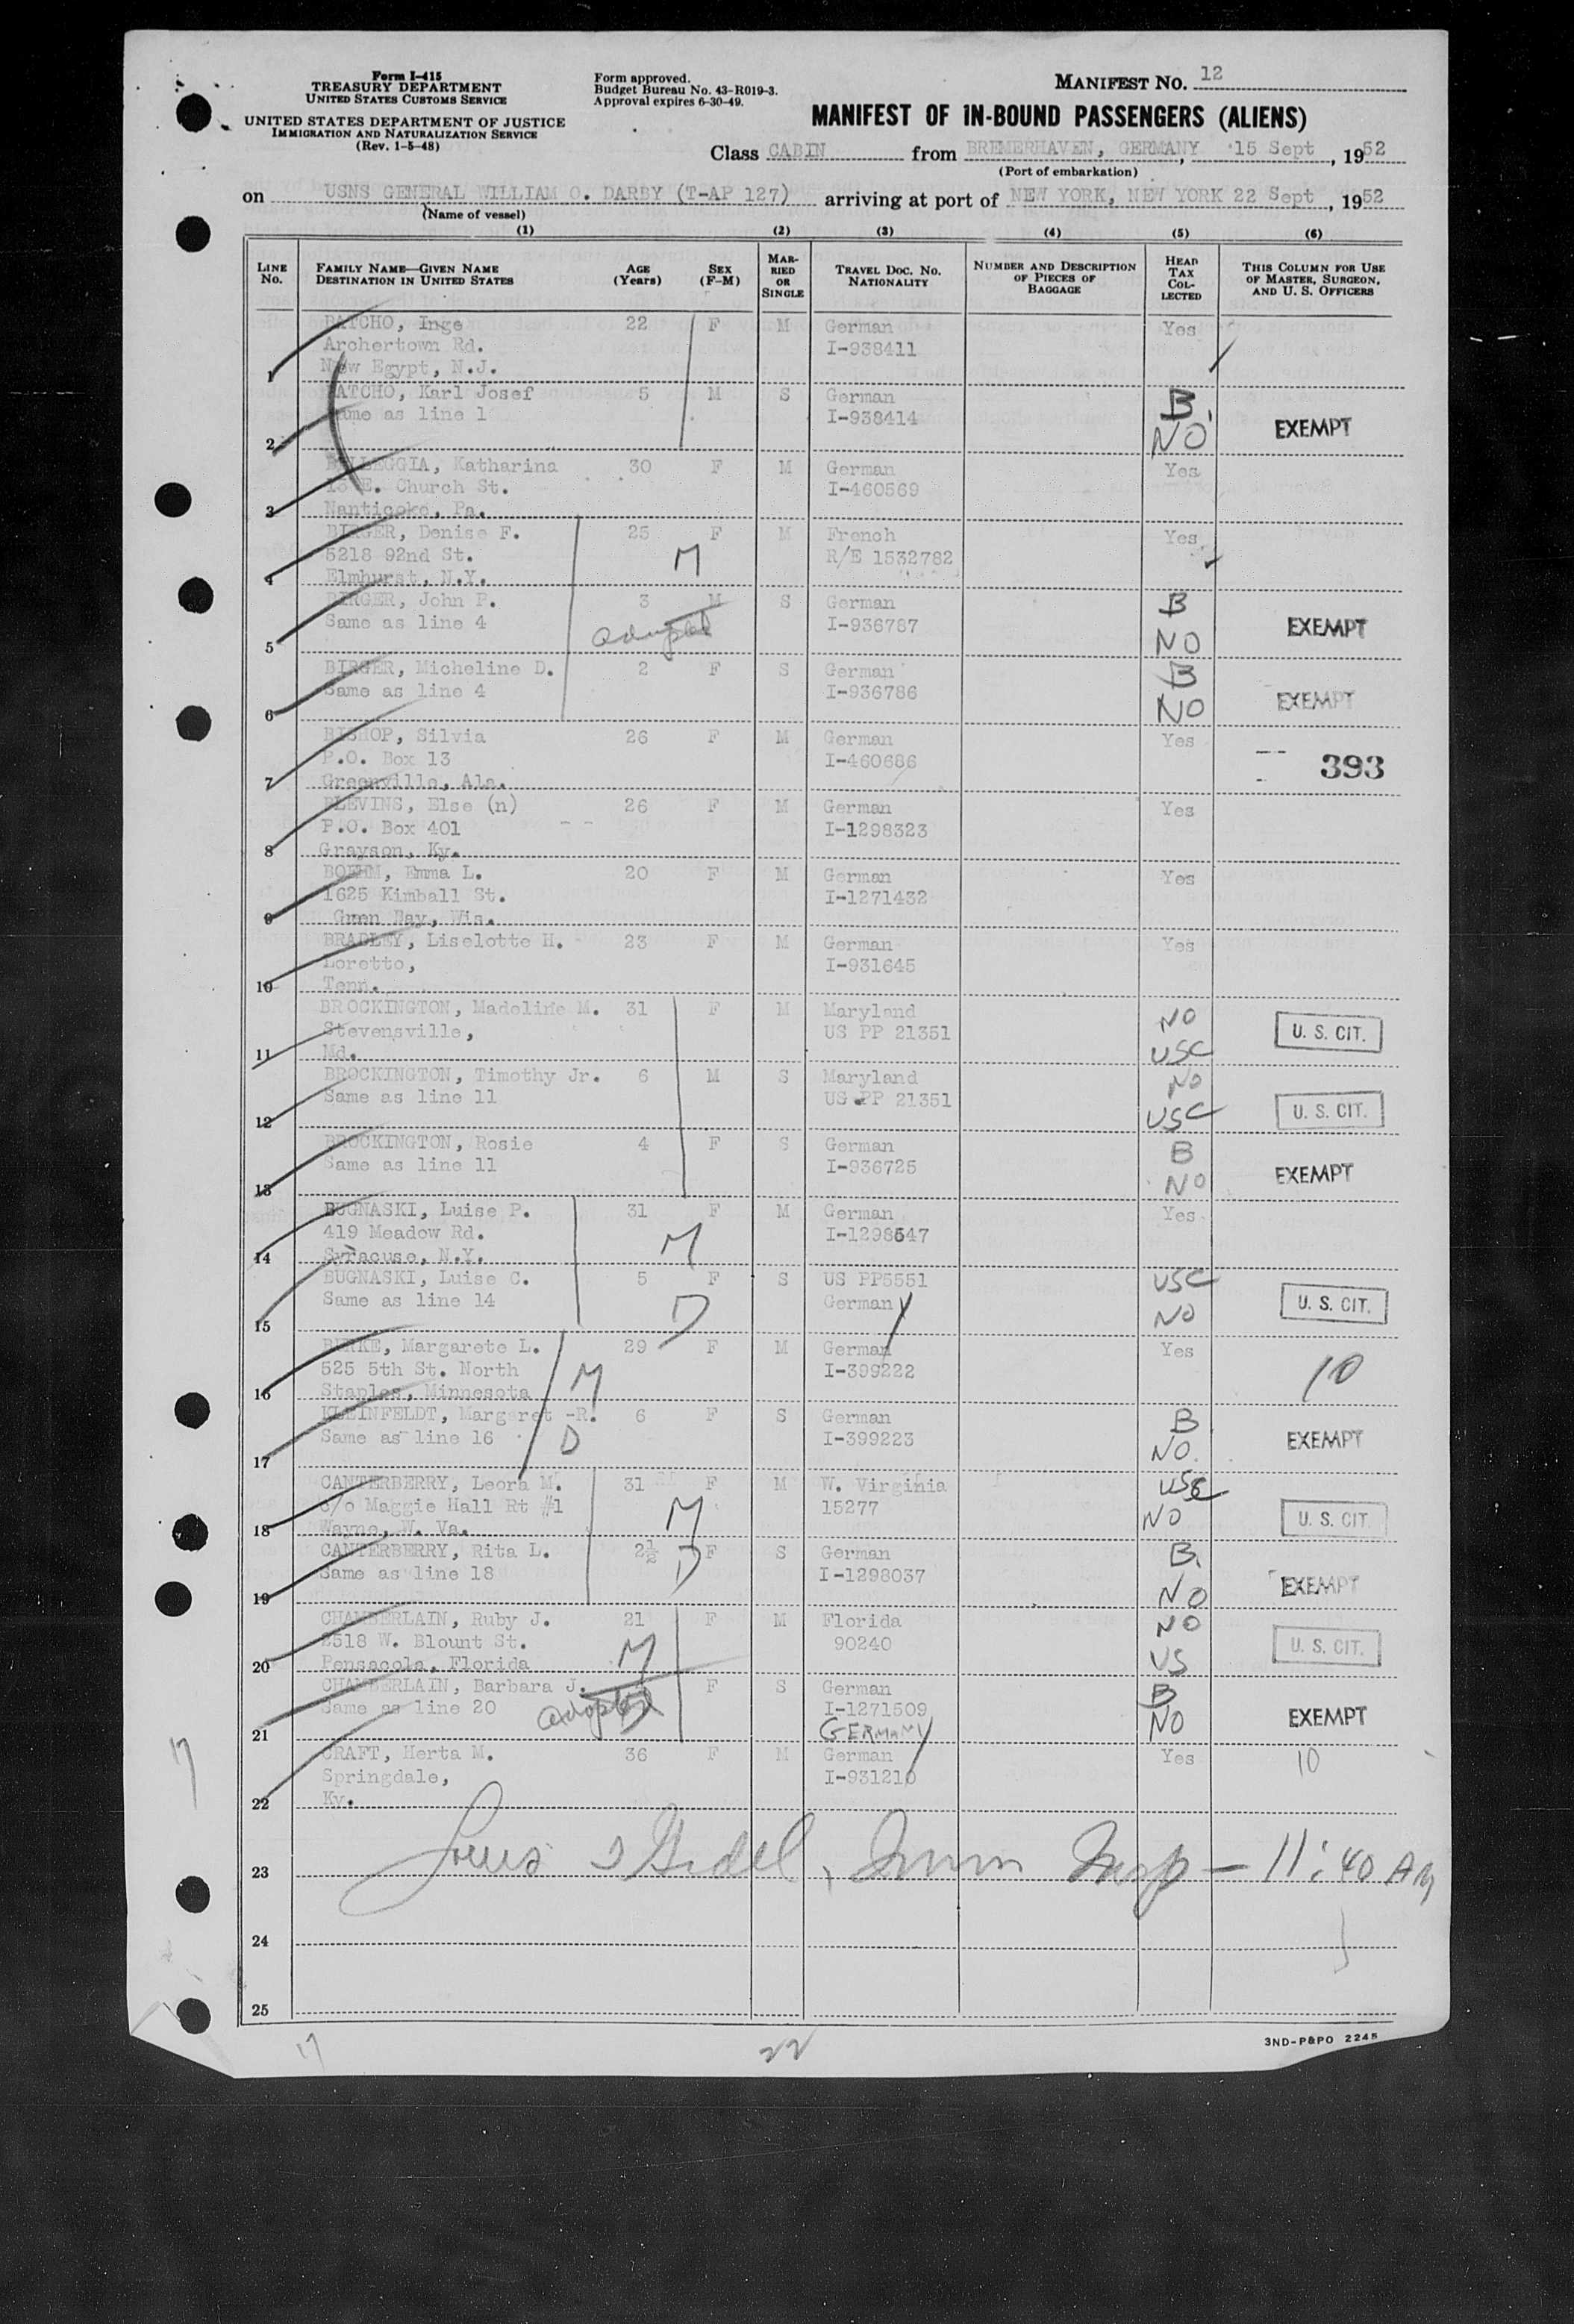 Form I-415
TREASURY DEPARTMENT
UNITED STATES CUSTOMS SERVICE
UNITED STATES DEPARTMENT OF JUSTICE
IMMIGRATION AND NATURALIZATION SERVICE
(Rev. 1-5-48)
Form approved.
Budget Bureau No. 43-R019-3.
Approval expires 6-30-49.
MANIFEST NO. 12
MANIFEST OF IN-BOUND PASSENGERS (ALIENS)
Class CABIN from BREMERHAVEN, GERMANY, 15 Sept, 1952
(Port of embarkation)
on USNS GENERAL WILLIAM O. DARBY (T-AP 127) arriving at port of NEW YORK, NEW YORK 22 Sept, 1952
(Name of vessel)
(1) (2) (3) (4) (5) (6)
LINE No. FAMILY NAME—GIVEN NAME DESTINATION IN UNITED STATES AGE (Years) SEX (F-M) MARRIED OR SINGLE TRAVEL DOC. NO. NATIONALITY NUMBER AND DESCRIPTION OF PIECES OF BAGGAGE HEAD TAX COLLECTED THIS COLUMN FOR USE OF MASTER, SURGEON, AND U. S. OFFICERS
BATCHO, Inge 22 F M German Yes
Archertown Rd. I-938411
1 New Egypt, N.J.
BATCHO, Karl Josef 5 M S German B
2 Same as line 1 I-938414 NO EXEMPT
BELLEGGIA, Katharina 30 F M German Yes
E. Church St. I-460569
3 Nanticoke, Pa.
BIRGER, Denise F. 25 F M French Yes
5218 92nd St. M R/E 1532782
4 Elmhurst, N.Y.
BIRGER, John P. 3 M S German B
5 Same as line 4 adopted I-936787 NO EXEMPT
BIRGER, Micheline D. 2 F S German B
6 Same as line 4 I-936786 NO EXEMPT
BISHOP, Silvia 26 F M German Yes
P.O. Box 13 I-460686 393
7 Greenville, Ala.
BLEVINS, Else (n) 26 F M German Yes
P.O. Box 401 I-1298323
8 Grayson, Ky.
BOEHM, Emma L. 20 F M German Yes
1625 Kimball St. I-1271432
9 Green Bay, Wis.
BRADLEY, Liselotte H. 23 F M German Yes
Loretto, I-931645
10 Tenn.
BROCKINGTON, Madeline M. 31 F M Maryland NO
Stevensville, US PP 21351 U. S. CIT.
11 Md. USC
BROCKINGTON, Timothy Jr. 6 M S Maryland NO
12 Same as line 11 US PP 21351 USC U. S. CIT.
BROCKINGTON, Rosie 4 F S German B
13 Same as line 11 I-936725 NO EXEMPT
BUGNASKI, Luise P. 31 F M German Yes
419 Meadow Rd. M I-1298647
14 Syracuse, N.Y.
BUGNASKI, Luise C. 5 F S US PP5551 USC
15 Same as line 14 D German NO U. S. CIT.
BURKE, Margarete L. 29 F M German Yes
525 5th St. North M I-399222 10
16 Staples, Minnesota
KLEINFELDT, Margaret -R. 6 F S German B
17 Same as line 16 D I-399223 NO. EXEMPT
CANTERBERRY, Leora M. 31 F M W. Virginia USC
c/o Maggie Hall Rt #1 M 15277 NO U. S. CIT.
18 Wayne, W. Va.
CANTERBERRY, Rita L. 2½ F S German B.
19 Same as line 18 D I-1298037 NO EXEMPT
CHAMBERLAIN, Ruby J. 21 F M Florida NO
2518 W. Blount St. M 90240 US U. S. CIT.
20 Pensacola, Florida
CHAMBERLAIN, Barbara J. F S German B
21 Same as line 20 adopted I-1271509 NO EXEMPT
GERMANY
CRAFT, Herta M. 36 F M German Yes 10
Springdale, I-931210
22 Ky.
23 Immn Insp — 11:40 AM
24
25
17
22
3ND-P&PO 2245